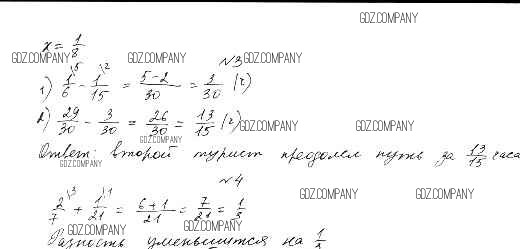 GDZ.COMPANY
x = 1/8
GDZ.COMPANY GDZ.COMPANY №3 GDZ.COMPANY
1) 1/6 \5 - 1/15 \2 = 5-2/30 = 3/30 (г)
2) 29/30 - 3/30 = 26/30 = 13/15 (г) GDZ.COMPANY GDZ.COMPANY
GDZ.COMPANY
Ответ: второй турист преодолел путь за 13/15 часа
GDZ.COMPANY
№4
2/7 \3 + 1/21 \1 = 6+1/21 = 7/21 = 1/3 GDZ.COMPANY GDZ.COMPANY
GDZ.COMPANY GDZ.COMPANY
Разность уменьшится на